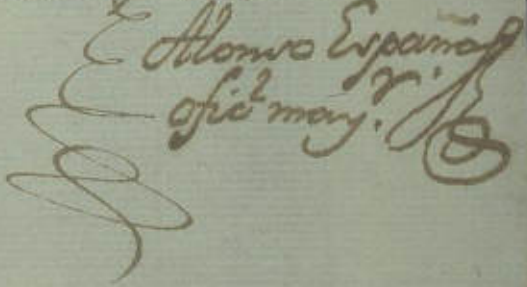 Alonso Español
ofic.l may.r